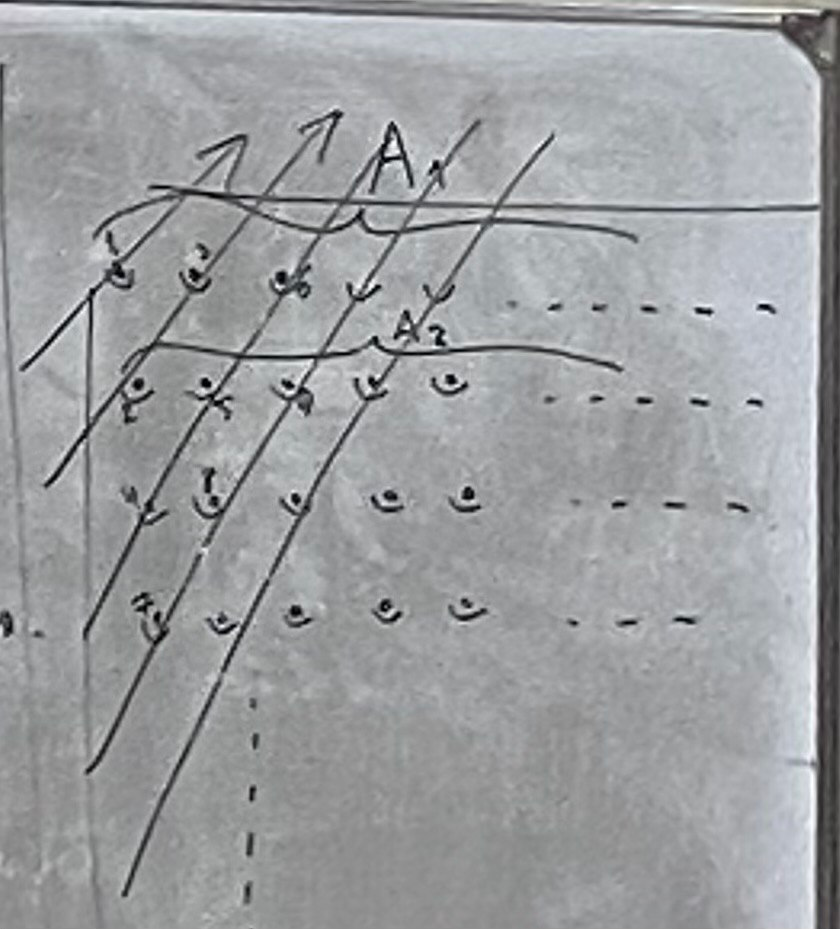 A₁
1 3 6
A₂
2 5 9
4 8
7